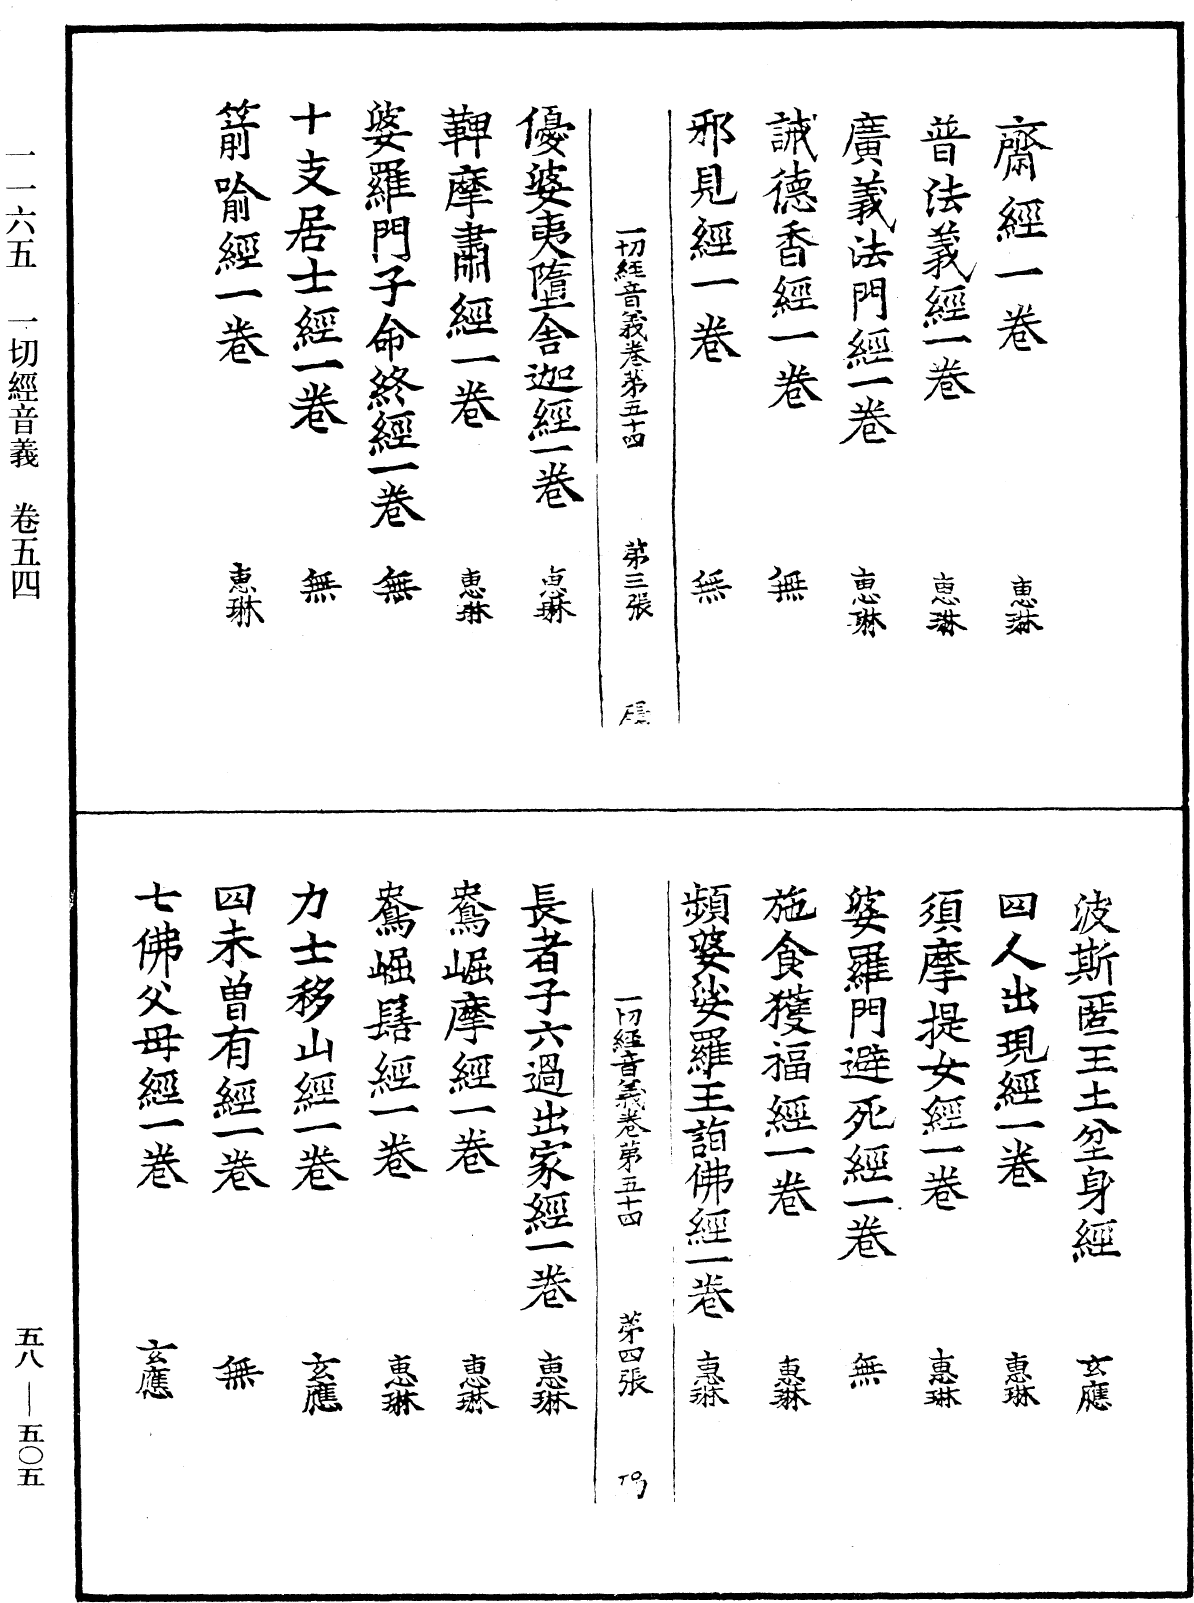 齋經一卷　惠琳
普法義經一卷　惠琳
廣義法門經一卷　惠琳
誡德香經一卷　無
邪見經一卷　無
一切經音義卷第五十四　第三張
優婆夷墮舍迦經一卷　惠琳
鞞摩肅經一卷　惠琳
婆羅門子命終經一卷　無
十支居士經一卷　無
箭喻經一卷　惠琳
波斯匿王土坌身經　玄應
四人出現經一卷　惠琳
須摩提女經一卷　惠琳
婆羅門避死經一卷　無
施食獲福經一卷　惠琳
頻婆娑羅王詣佛經一卷　惠琳
一切經音義卷第五十四　第四張
長者子六過出家經一卷　惠琳
鴦崛摩經一卷　惠琳
鴦崛髻經一卷　惠琳
力士移山經一卷　玄應
四未曾有經一卷　無
七佛父母經一卷　玄應
一一六五　一切經音義　卷五四
五八—五〇五